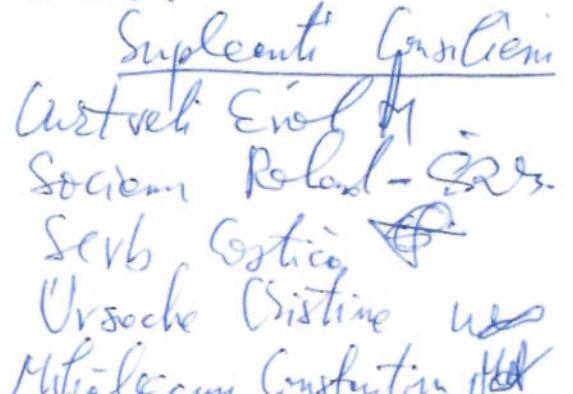 Supleanti Consilieni
Curtveli Erol
Sociem Roland -
Serb Costică
Ursache Cristine
Constantin